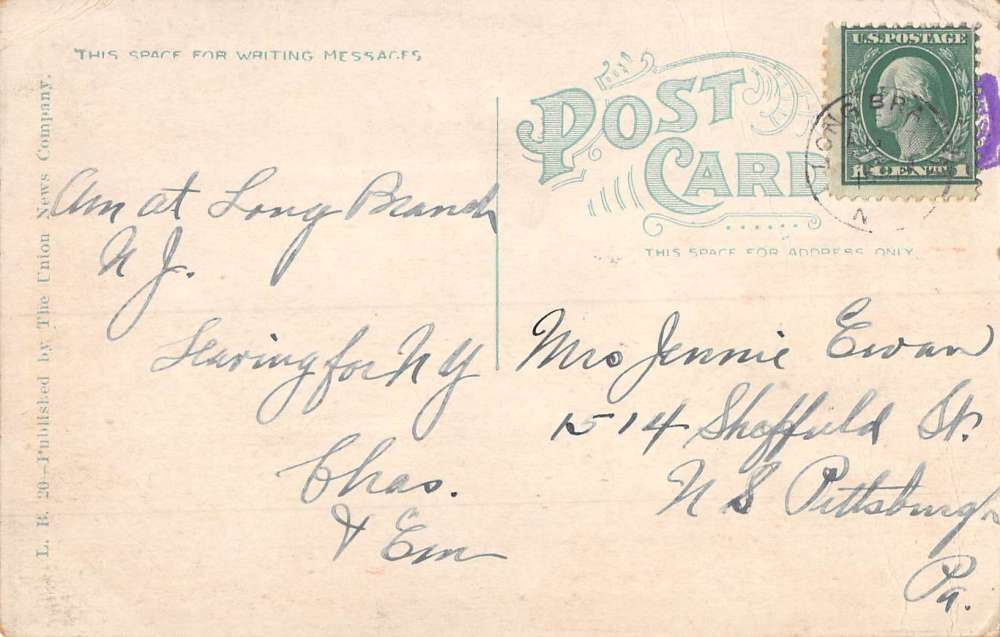 THIS SPACE FOR WRITING MESSAGES
POST CARD
THIS SPACE FOR ADDRESS ONLY
U.S. POSTAGE
1 CENT 1
LONG BRA
N
L. B. 20—Published by The Union News Company.
Am at Long Branch
N J.
Leaving for N Y
Chas.
& Em
Mrs Jennie Ewan
1514 Sheffield St.
N S Pittsburgh
Pa.